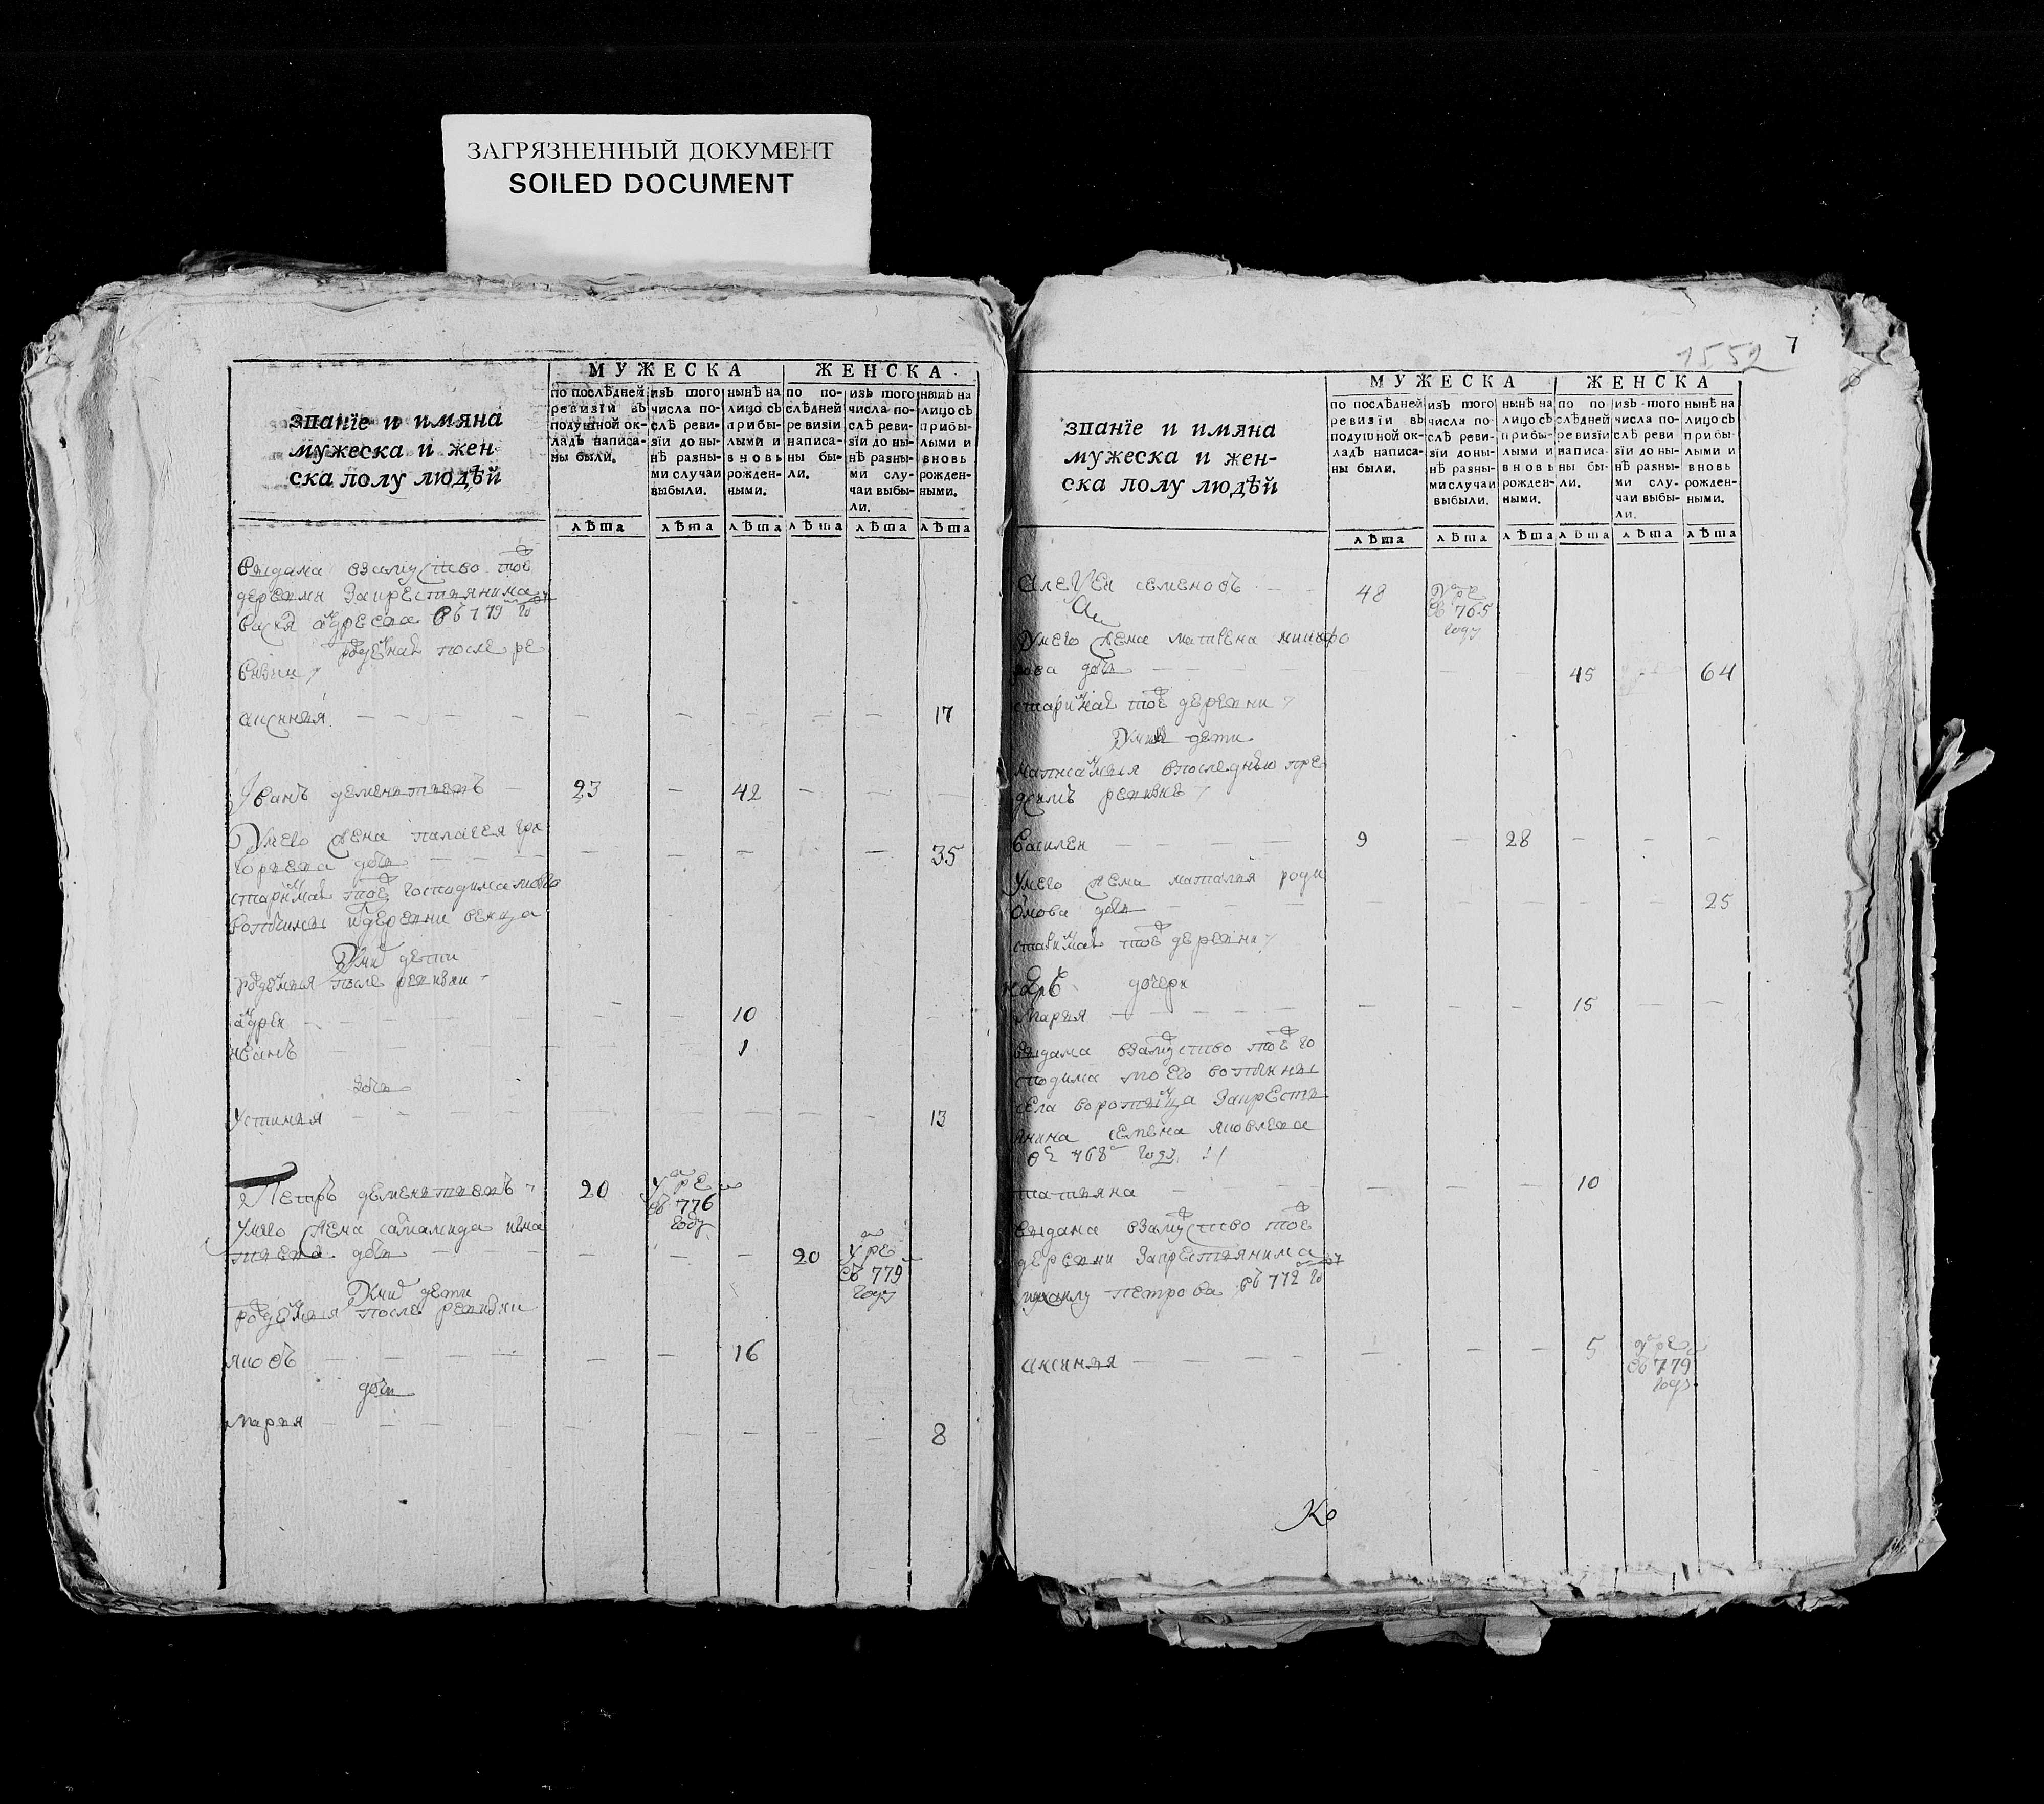 ЗАГРЯЗНЕННЫЙ ДОКУМЕНТ
SOILED DOCUMENT
МУЖЕСКА
ЖЕНСКА
званїе и имяна
мужеска и жен-
ска полу людѣй
по послѣдней
ревизїи въ
подушной ок-
ладъ написа-
ны были.
изъ того
числа по-
слѣ реви-
зїи до ны-
нѣ разны-
ми случаи
выбыли.
нынѣ на
лицо съ
прибы-
лыми и
вновь
рожден-
ными.
по по-
слѣдней
ревизїи
написа-
ны бы-
ли.
изъ того
числа по-
слѣ реви-
зїи до ны-
нѣ разны-
ми слу-
чаи выбы-
ли.
нынѣ на
лицо съ
прибы-
лыми и
вновь
рожден-
ными.
лѣта лѣта лѣта лѣта лѣта лѣта
выдана взамужство тоѣ
деревни закрестьянина
въ 779 го
рожденая после ре
визии
аксинья 17
Иванъ дементьевъ 23 42
У него жена палагея гри
горьева дочь 35
старинная тоѣ господина моего
вотчины деревни
У них дети
рожденныя после ревизии
андрей 10
иванъ 1
дочь
устинья 13
Петръ дементьевъ 20 умре
въ 776
году
У него жена
дочь 20 умре
въ 779
году
У них дети
рожденныя после ревизии
яковъ 16
дочь
марья 8
1552
7
МУЖЕСКА
ЖЕНСКА
званїе и имяна
мужеска и жен-
ска полу людѣй
по послѣдней
ревизїи въ
подушной ок-
ладъ написа-
ны были.
изъ того
числа по-
слѣ реви-
зїи до ны-
нѣ разны-
ми случаи
выбыли.
нынѣ на
лицо съ
прибы-
лыми и
вновь
рожден-
ными.
по по-
слѣдней
ревизїи
написа-
ны бы-
ли.
изъ того
числа по-
слѣ реви
зїи до ны-
нѣ разны-
ми слу-
чаи выбы-
ли.
нынѣ на
лицо съ
прибы-
лыми и
вновь
рожден-
ными.
лѣта лѣта лѣта лѣта лѣта лѣта
Алексей семеновъ 48 умре
въ 765
году
У него жена матрена никифо
рова дочь 45 64
старинная тоѣ деревни
У них дети
написанныя впоследнюю пре
ревизию
василей 9 28
У него жена наталья роди
онова дочь 25
старинная тоѣ деревни
дочери
марья 15
выдана взамужство тоѣ го
сподина моего вотчины
села закрестья
янина семена яковлева
въ 768 году
татьяна 10
выдана взамужство тоѣ
деревни закрестьянина
михаилу петрова въ 772 го
аксинья 5 умре
въ 779
году
Ко